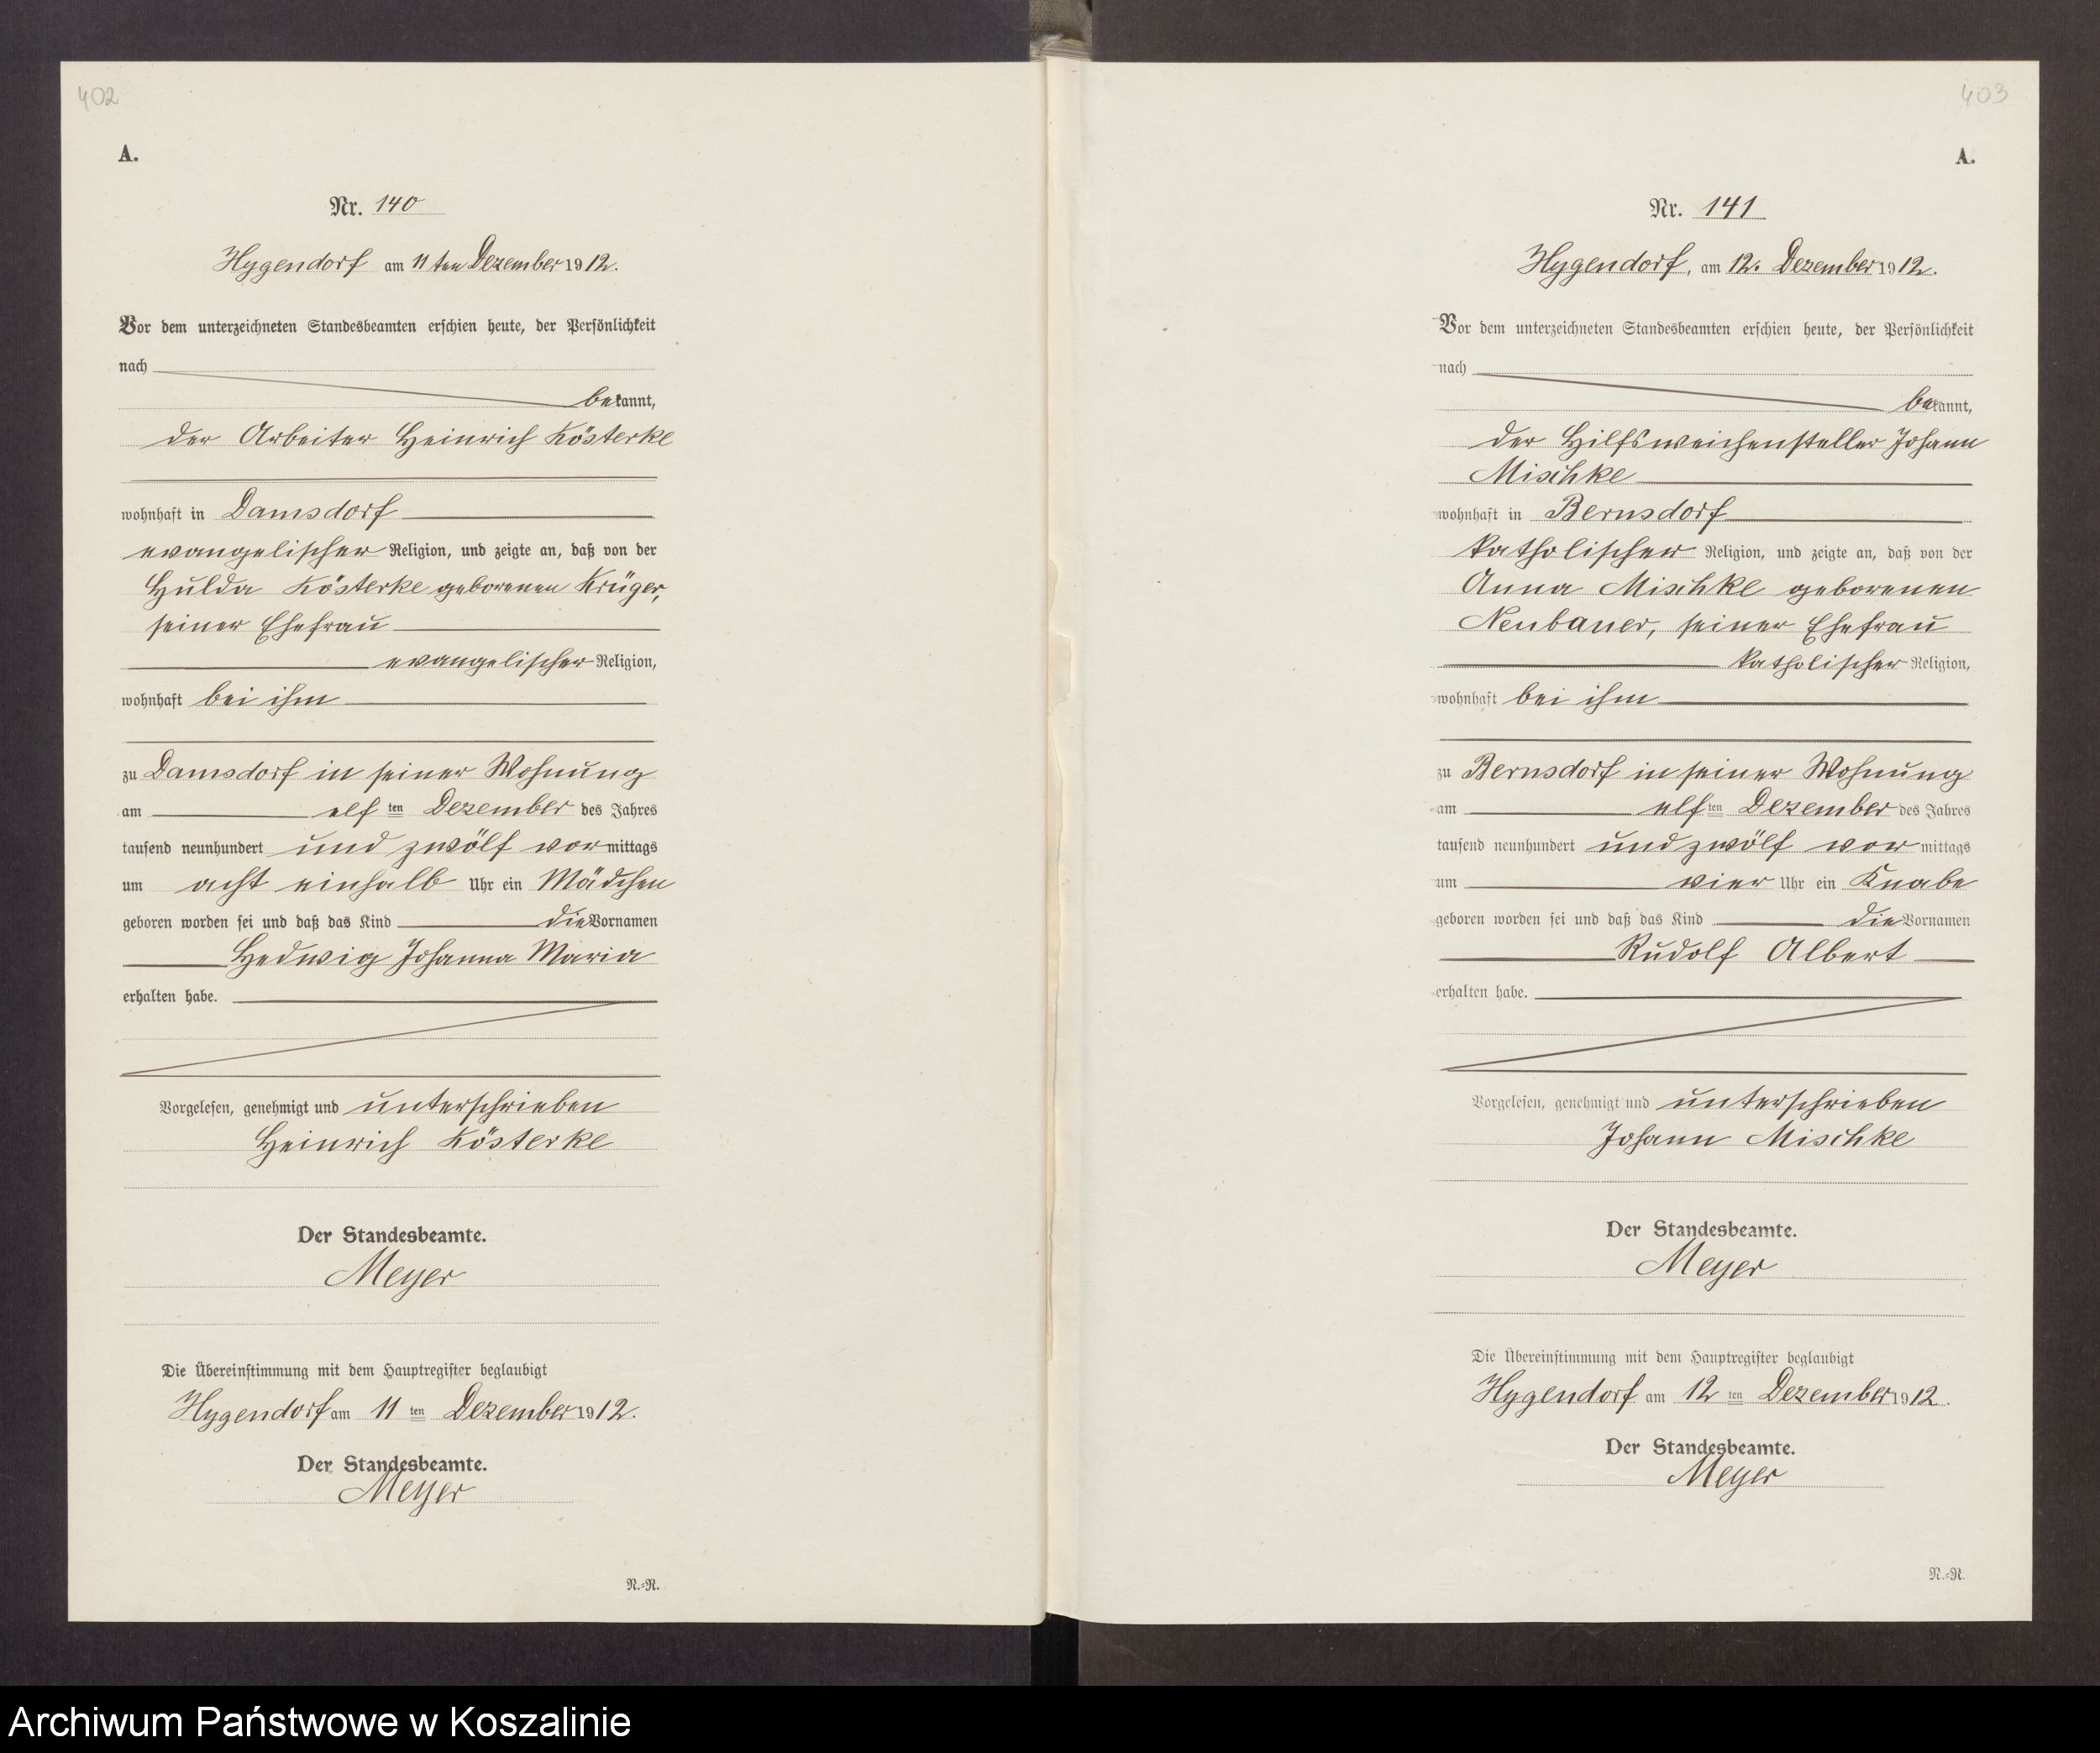 402
A.
Nr. 140
Hygendorf am 11 ten Dezember 1912.
Vor dem unterzeichneten Standesbeamten erschien heute, der Persönlichkeit
nach
bekannt,
der Arbeiter Heinrich Kösterke
wohnhaft in Damsdorf
evangelischer Religion, und zeigte an, daß von der
Hulda Kösterke geborenen Krüger,
seiner Ehefrau
evangelischer Religion,
wohnhaft bei ihm
zu Damsdorf in seiner Wohnung
am elf ten Dezember des Jahres
tausend neunhundert und zwölf vormittags
um acht einhalb Uhr ein Mädchen
geboren worden sei und daß das Kind die Vornamen
Hedwig Johanna Maria
erhalten habe.
Vorgelesen, genehmigt und unterschrieben
Heinrich Kösterke
Der Standesbeamte.
Meyer
Die Übereinstimmung mit dem Hauptregister beglaubigt
Hygendorf am 11 ten Dezember 1912.
Der Standesbeamte.
Meyer
N.=R.
403
A.
Nr. 141
Hygendorf, am 12. Dezember 1912.
Vor dem unterzeichneten Standesbeamten erschien heute, der Persönlichkeit
nach
bekannt,
der Hilfsweichensteller Johann
Mischke
wohnhaft in Bernsdorf
katholischer Religion, und zeigte an, daß von der
Anna Mischke geborenen
Neubauer, seiner Ehefrau
katholischer Religion,
wohnhaft bei ihm
zu Bernsdorf in seiner Wohnung
am elf ten Dezember des Jahres
tausend neunhundert und zwölf vormittags
um vier Uhr ein Knabe
geboren worden sei und daß das Kind die Vornamen
Rudolf Albert
erhalten habe.
Vorgelesen, genehmigt und unterschrieben
Johann Mischke
Der Standesbeamte.
Meyer
Die Übereinstimmung mit dem Hauptregister beglaubigt
Hygendorf am 12 ten Dezember 1912.
Der Standesbeamte.
Meyer
N.=R.
Archiwum Państwowe w Koszalinie